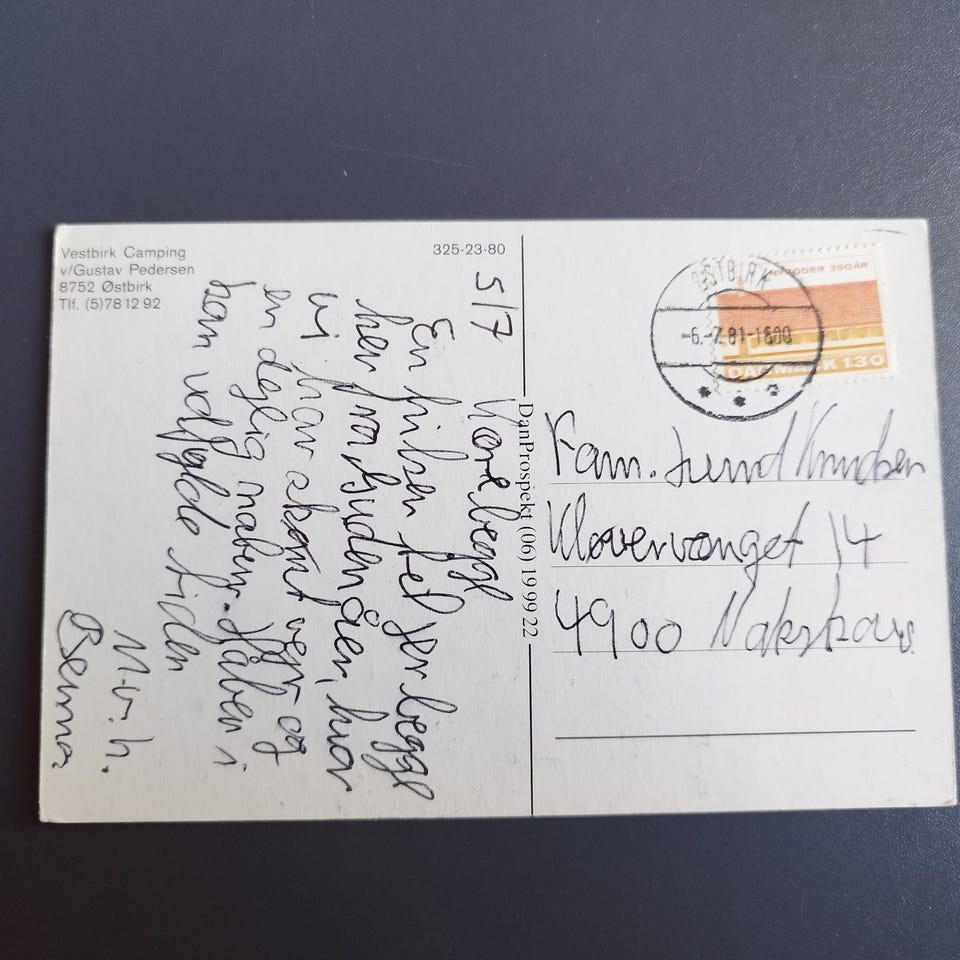 Vestbirk Camping
v/Gustav Pedersen
8752 Østbirk
Tlf. (5)78 12 92
325-23-80
5/7
Kære begge
En hilsen til jer begge
her fra Guden åen, hvor
vi har skønt vejr og
en dejlig natur. Håber i
kan udfylde tiden
M.v.h.
Benna.
DanProspekt (06) 19 99 22
ØSTBIRK
-6.-7.81-1600
350 ÅR
DANMARK 130
Fam. Lund Knudsen
Kløvervænget 14
4900 Nakskov